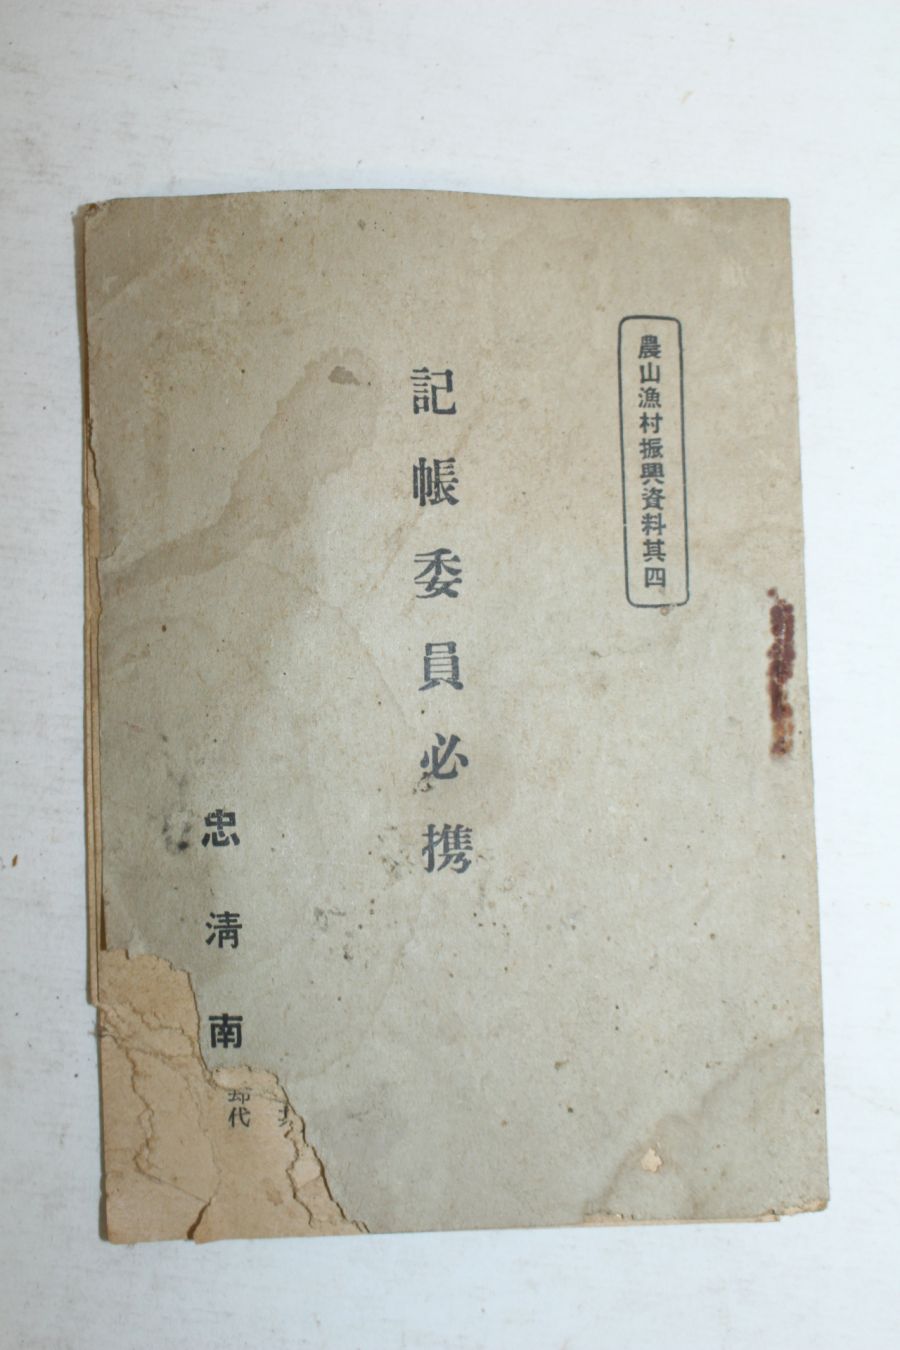 農山漁村振興資料其四
記帳委員必携
忠清南
却代